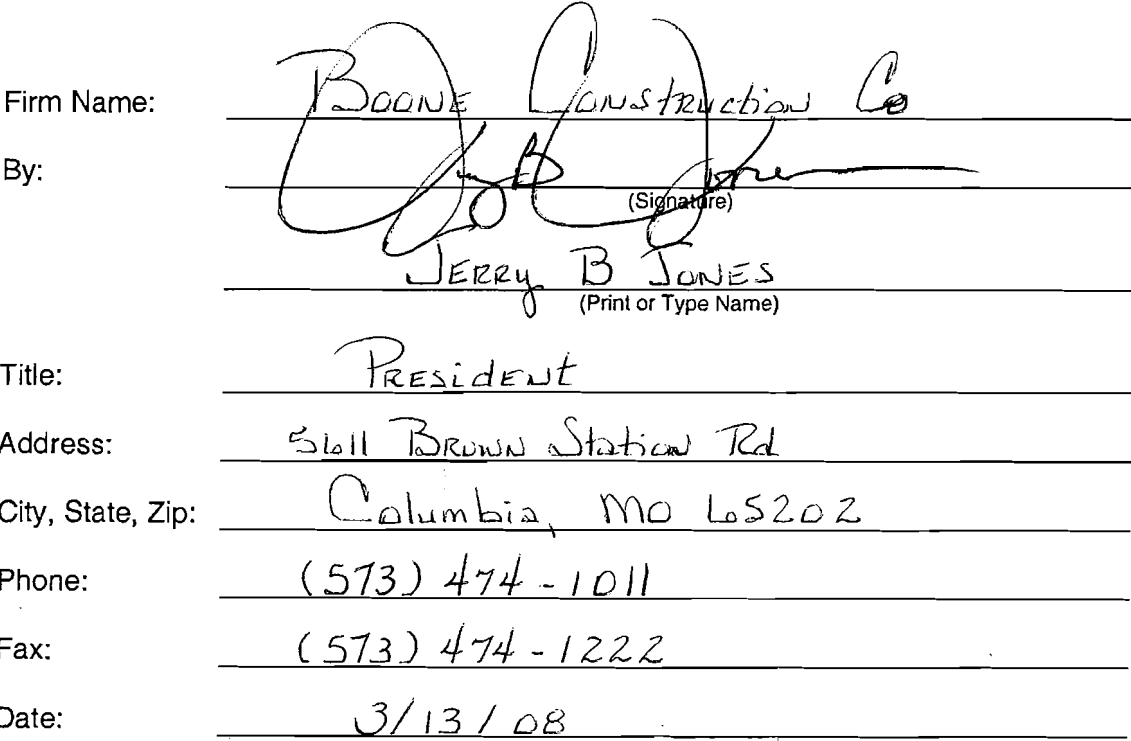 Firm Name: Boone Construction Co
By: Jerry B Jones
(Signature)
Jerry B Jones
(Print or Type Name)
Title: President
Address: 5611 Brown Station Rd
City, State, Zip: Columbia, MO 65202
Phone: (573) 474-1011
Fax: (573) 474-1222
Date: 3/13/08